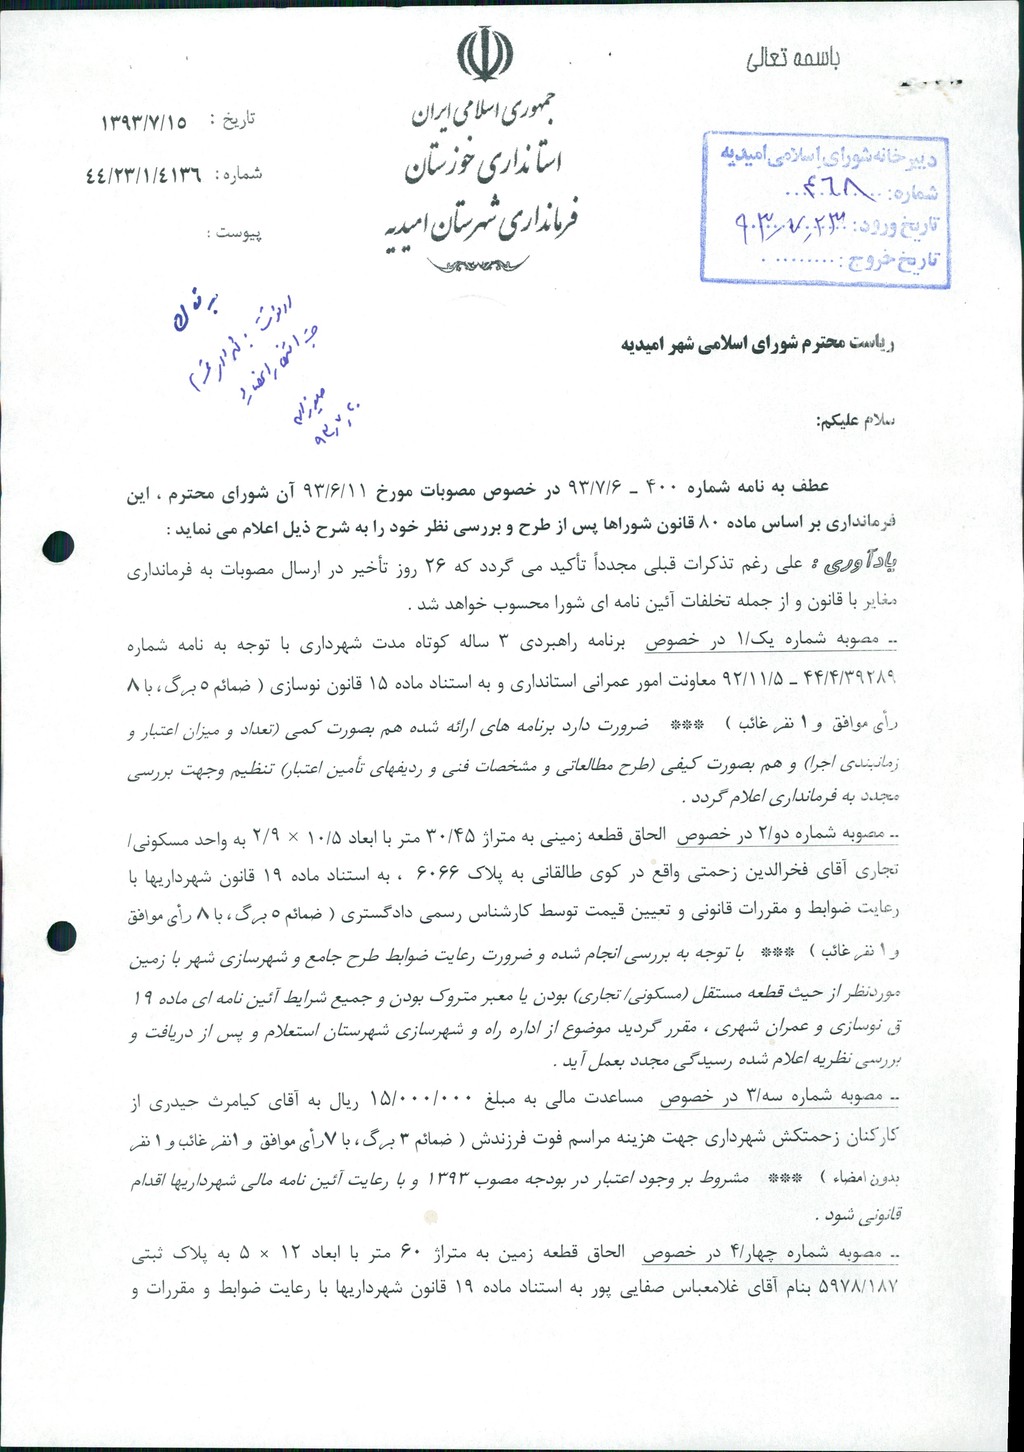 باسمه تعالی
جمهوری اسلامی ایران
استانداری خوزستان
فرمانداری شهرستان امیدیه
تاریخ : ۱۳۹۳/۷/۱۵
شماره : ۴۴/۲۳/۱/۴۱۳۶
پیوست :
دبیرخانه شورای اسلامی امیدیه
شماره: ۴۶۸
تاریخ ورود: ۹۳.۷.۲۳
تاریخ خروج :
ریاست محترم شورای اسلامی شهر امیدیه
سلام علیکم:
عطف به نامه شماره ۴۰۰ ـ ۹۳/۷/۶ در خصوص مصوبات مورخ ۹۳/۶/۱۱ آن شورای محترم ، این
فرمانداری بر اساس ماده ۸۰ قانون شوراها پس از طرح و بررسی نظر خود را به شرح ذیل اعلام می نماید :
یادآوری : علی رغم تذکرات قبلی مجدداً تأکید می گردد که ۲۶ روز تأخیر در ارسال مصوبات به فرمانداری
مغایر با قانون و از جمله تخلفات آئین نامه ای شورا محسوب خواهد شد .
ـ مصوبه شماره یک/۱ در خصوص برنامه راهبردی ۳ ساله کوتاه مدت شهرداری با توجه به نامه شماره
۴۴/۴/۳۹۲۸۹ ـ ۹۲/۱۱/۵ معاونت امور عمرانی استانداری و به استناد ماده ۱۵ قانون نوسازی ( ضمائم ۵ برگ، با ۸
رأی موافق و ۱ نفر غائب ) *** ضرورت دارد برنامه های ارائه شده هم بصورت کمی (تعداد و میزان اعتبار و
زمانبندی اجرا) و هم بصورت کیفی (طرح مطالعاتی و مشخصات فنی و ردیفهای تأمین اعتبار) تنظیم وجهت بررسی
مجدد به فرمانداری اعلام گردد .
ـ مصوبه شماره دو/۲ در خصوص الحاق قطعه زمینی به متراژ ۳۰/۴۵ متر با ابعاد ۱۰/۵ × ۲/۹ به واحد مسکونی/
تجاری آقای فخرالدین زحمتی واقع در کوی طالقانی به پلاک ۶۰۶۶ ، به استناد ماده ۱۹ قانون شهرداریها با
رعایت ضوابط و مقررات قانونی و تعیین قیمت توسط کارشناس رسمی دادگستری ( ضمائم ۵ برگ، با ۸ رأی موافق
و ۱ نفر غائب ) *** با توجه به بررسی انجام شده و ضرورت رعایت ضوابط طرح جامع و شهرسازی شهر با زمین
موردنظر از حیث قطعه مستقل (مسکونی/ تجاری) بودن یا معبر متروک بودن و جمیع شرایط آئین نامه ای ماده ۱۹
ق نوسازی و عمران شهری ، مقرر گردید موضوع از اداره راه و شهرسازی شهرستان استعلام و پس از دریافت و
بررسی نظریه اعلام شده رسیدگی مجدد بعمل آید .
ـ مصوبه شماره سه/۳ در خصوص مساعدت مالی به مبلغ ۱۵/۰۰۰/۰۰۰ ریال به آقای کیامرث حیدری از
کارکنان زحمتکش شهرداری جهت هزینه مراسم فوت فرزندش ( ضمائم ۳ برگ، با ۷رأی موافق و ۱نفر غائب و ۱ نفر
بدون امضاء ) *** مشروط بر وجود اعتبار در بودجه مصوب ۱۳۹۳ و با رعایت آئین نامه مالی شهرداریها اقدام
قانونی شود .
ـ مصوبه شماره چهار/۴ در خصوص الحاق قطعه زمین به متراژ ۶۰ متر با ابعاد ۱۲ × ۵ به پلاک ثبتی
۵۹۷۸/۱۸۷ بنام آقای غلامعباس صفایی پور به استناد ماده ۱۹ قانون شهرداریها با رعایت ضوابط و مقررات و